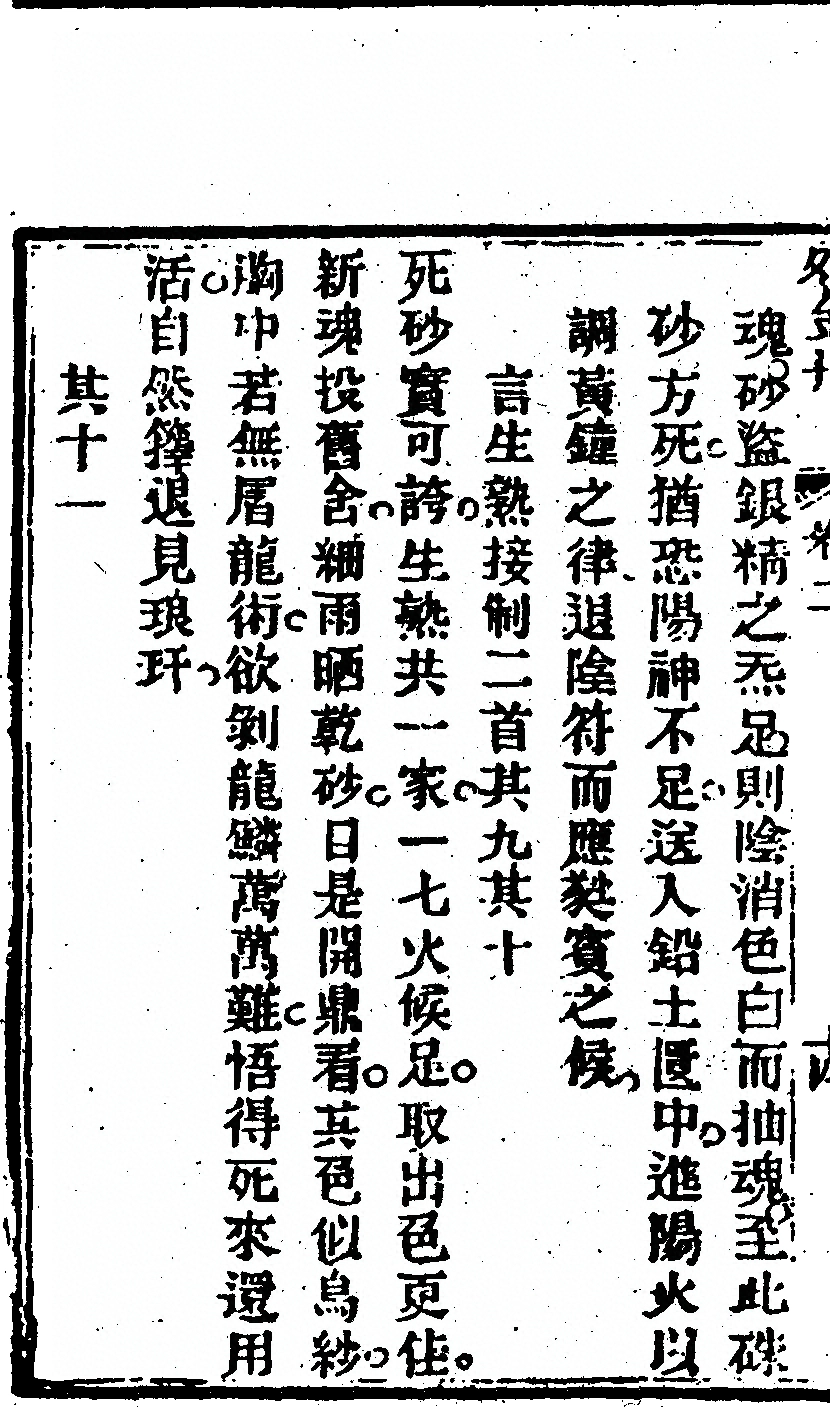 魂砂盜銀精之炁足則陰消色白而抽魂至此硃
砂方死猶恐陽神不足送入鉛土匱中進陽火以
調黃鐘之律退陰符而應蕤賓之候
言生熟接制二首其九其十
死砂實可誇生熟共一家一七火候足取出色更佳
新魂投舊舍細雨晒乾砂日是開鼎看其色似烏紗
胸中若無屠龍術欲剝龍鱗萬萬難悟得死來還用
活自然籜退見琅玕
其十一